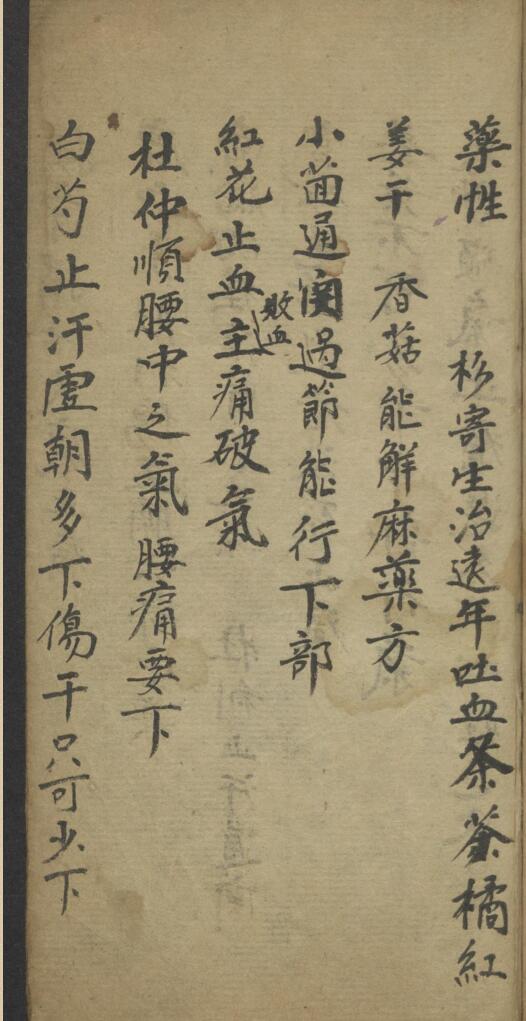 藥性 杉寄生治遠年吐血茶　橘紅
姜干 香菇能解麻藥方
小茴通関過節能行下部
紅花止血主痛破氣
敗血
杜仲順腰中之氣 腰痛要下
白芍止汗虛朝多下傷干只可少下